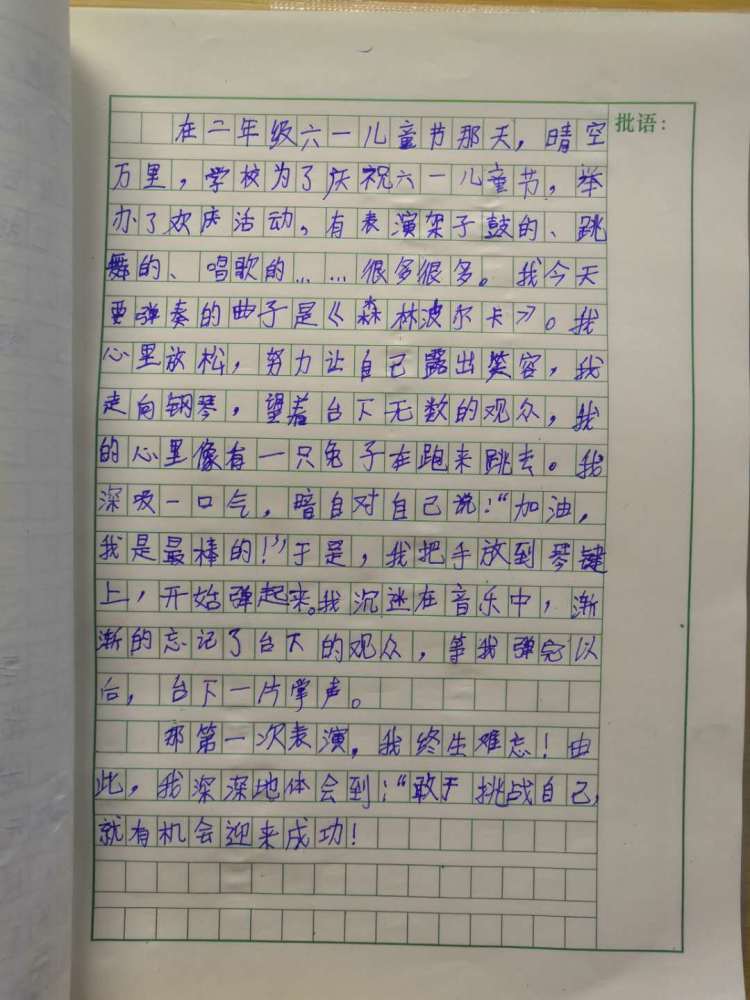 批语：
在二年级六一儿童节那天，晴空
万里，学校为了庆祝六一儿童节，举
办了欢庆活动，有表演架子鼓的、跳
舞的、唱歌的……很多很多。我今天
要弹奏的曲子是《森林波尔卡》。我
心里放松，努力让自己露出笑容，我
走向钢琴，望着台下无数的观众，我
的心里像有一只兔子在跑来跳去。我
深吸一口气，暗自对自己说：“加油，
我是最棒的！”于是，我把手放到琴键
上，开始弹起来。我沉迷在音乐中，渐
渐的忘记了台下的观众，等我弹完以
后，台下一片掌声。
那第一次表演，我终生难忘！由
此，我深深地体会到：“敢于挑战自己，
就有机会迎来成功！